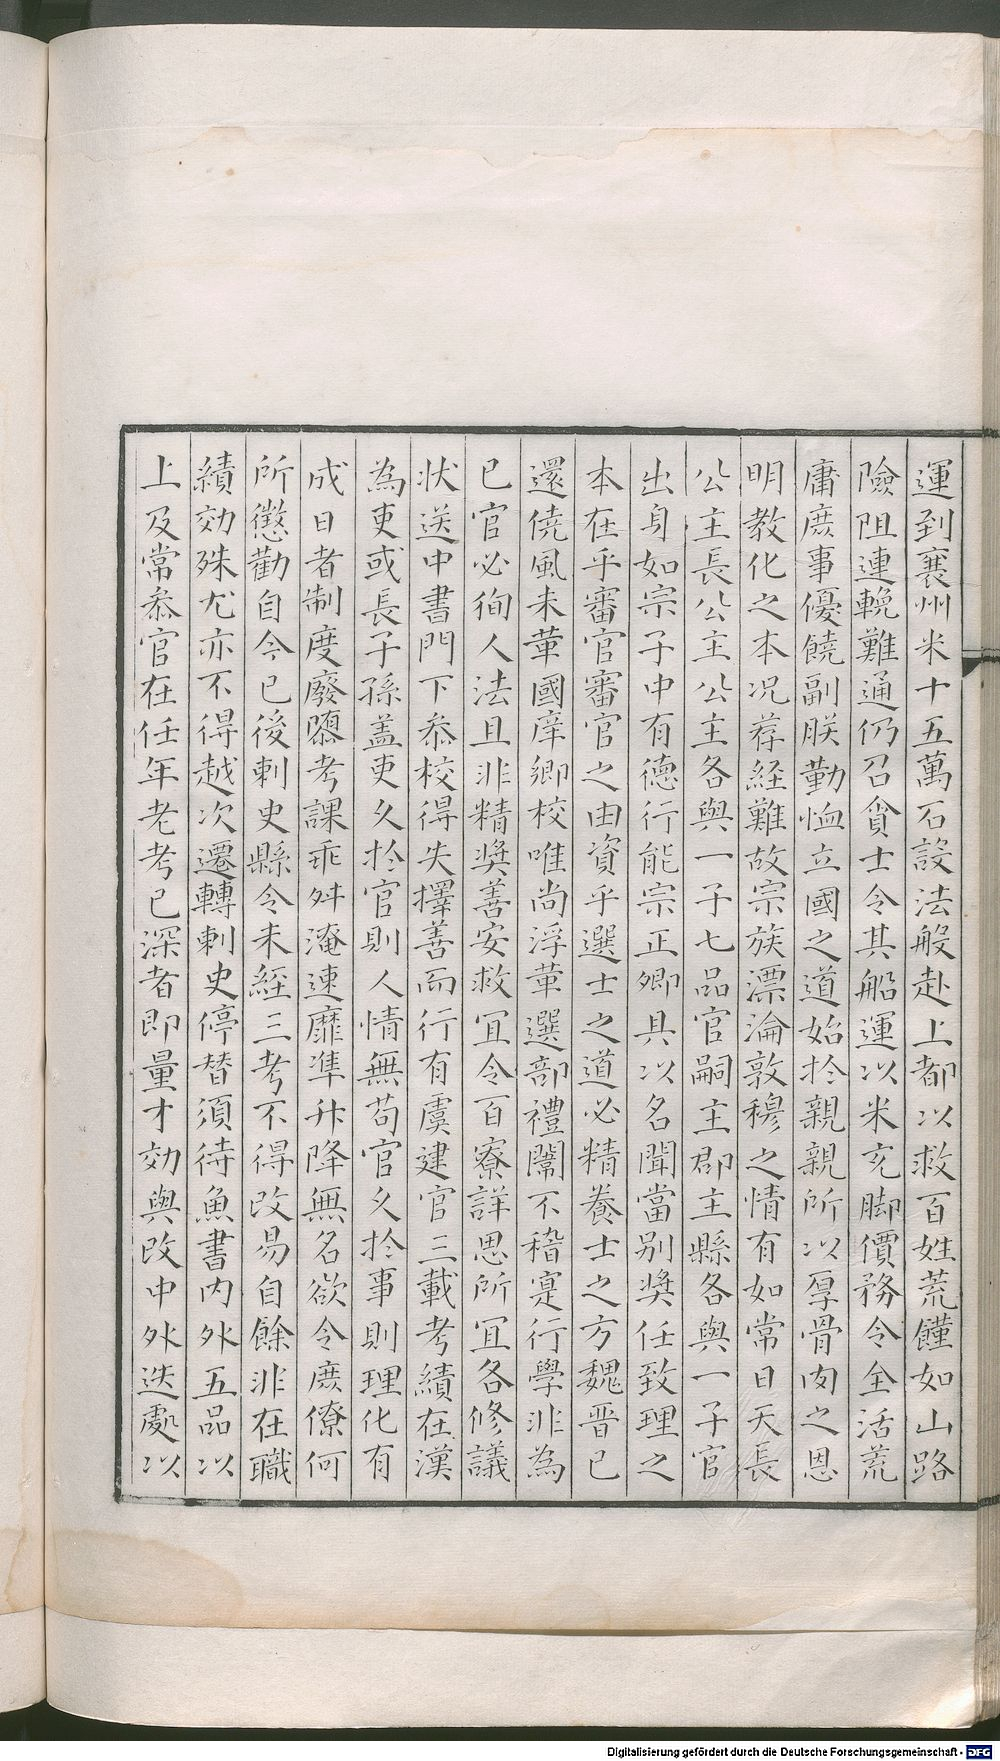 運到襄州米十五萬石設法般赴上都以救百姓荒饉如山路
險阻連輓難通仍召貧士令其船運以米充脚價務令全活荒
庸庶事優饒副朕勤恤立國之道始於親親所以厚骨肉之恩
明教化之本况荐經難故宗族漂淪敦穆之情有如常日天長
公主長公主公主各與一子七品官嗣主郡主縣各與一子官
出身如宗子中有德行能宗正卿具以名聞當别奬任致理之
本在乎審官審官之由資乎選士之道必精養士之方魏晋已
還僥風未華國庠鄉校唯尚浮華選部禮闈不稽寔行學非為
已官必徇人法且非精奬善安救冝令百寮詳思所冝各修議
状送中書門下叅校得失擇善而行有虞建官三載考績在漢
為吏或長子孫盖吏久於官則人情無苟官久於事則理化有
成日者制度廢隳考課乖舛淹速靡準升降無名欲令庶僚何
所懲勸自今已後刺史縣令未經三考不得改易自餘非在職
績効殊尤亦不得越次遷轉刺史停替須待魚書内外五品以
上及常叅官在任年老考已深者即量才効與改中外迭處以
Digitalisierung gefördert durch die Deutsche Forschungsgemeinschaft - DFG